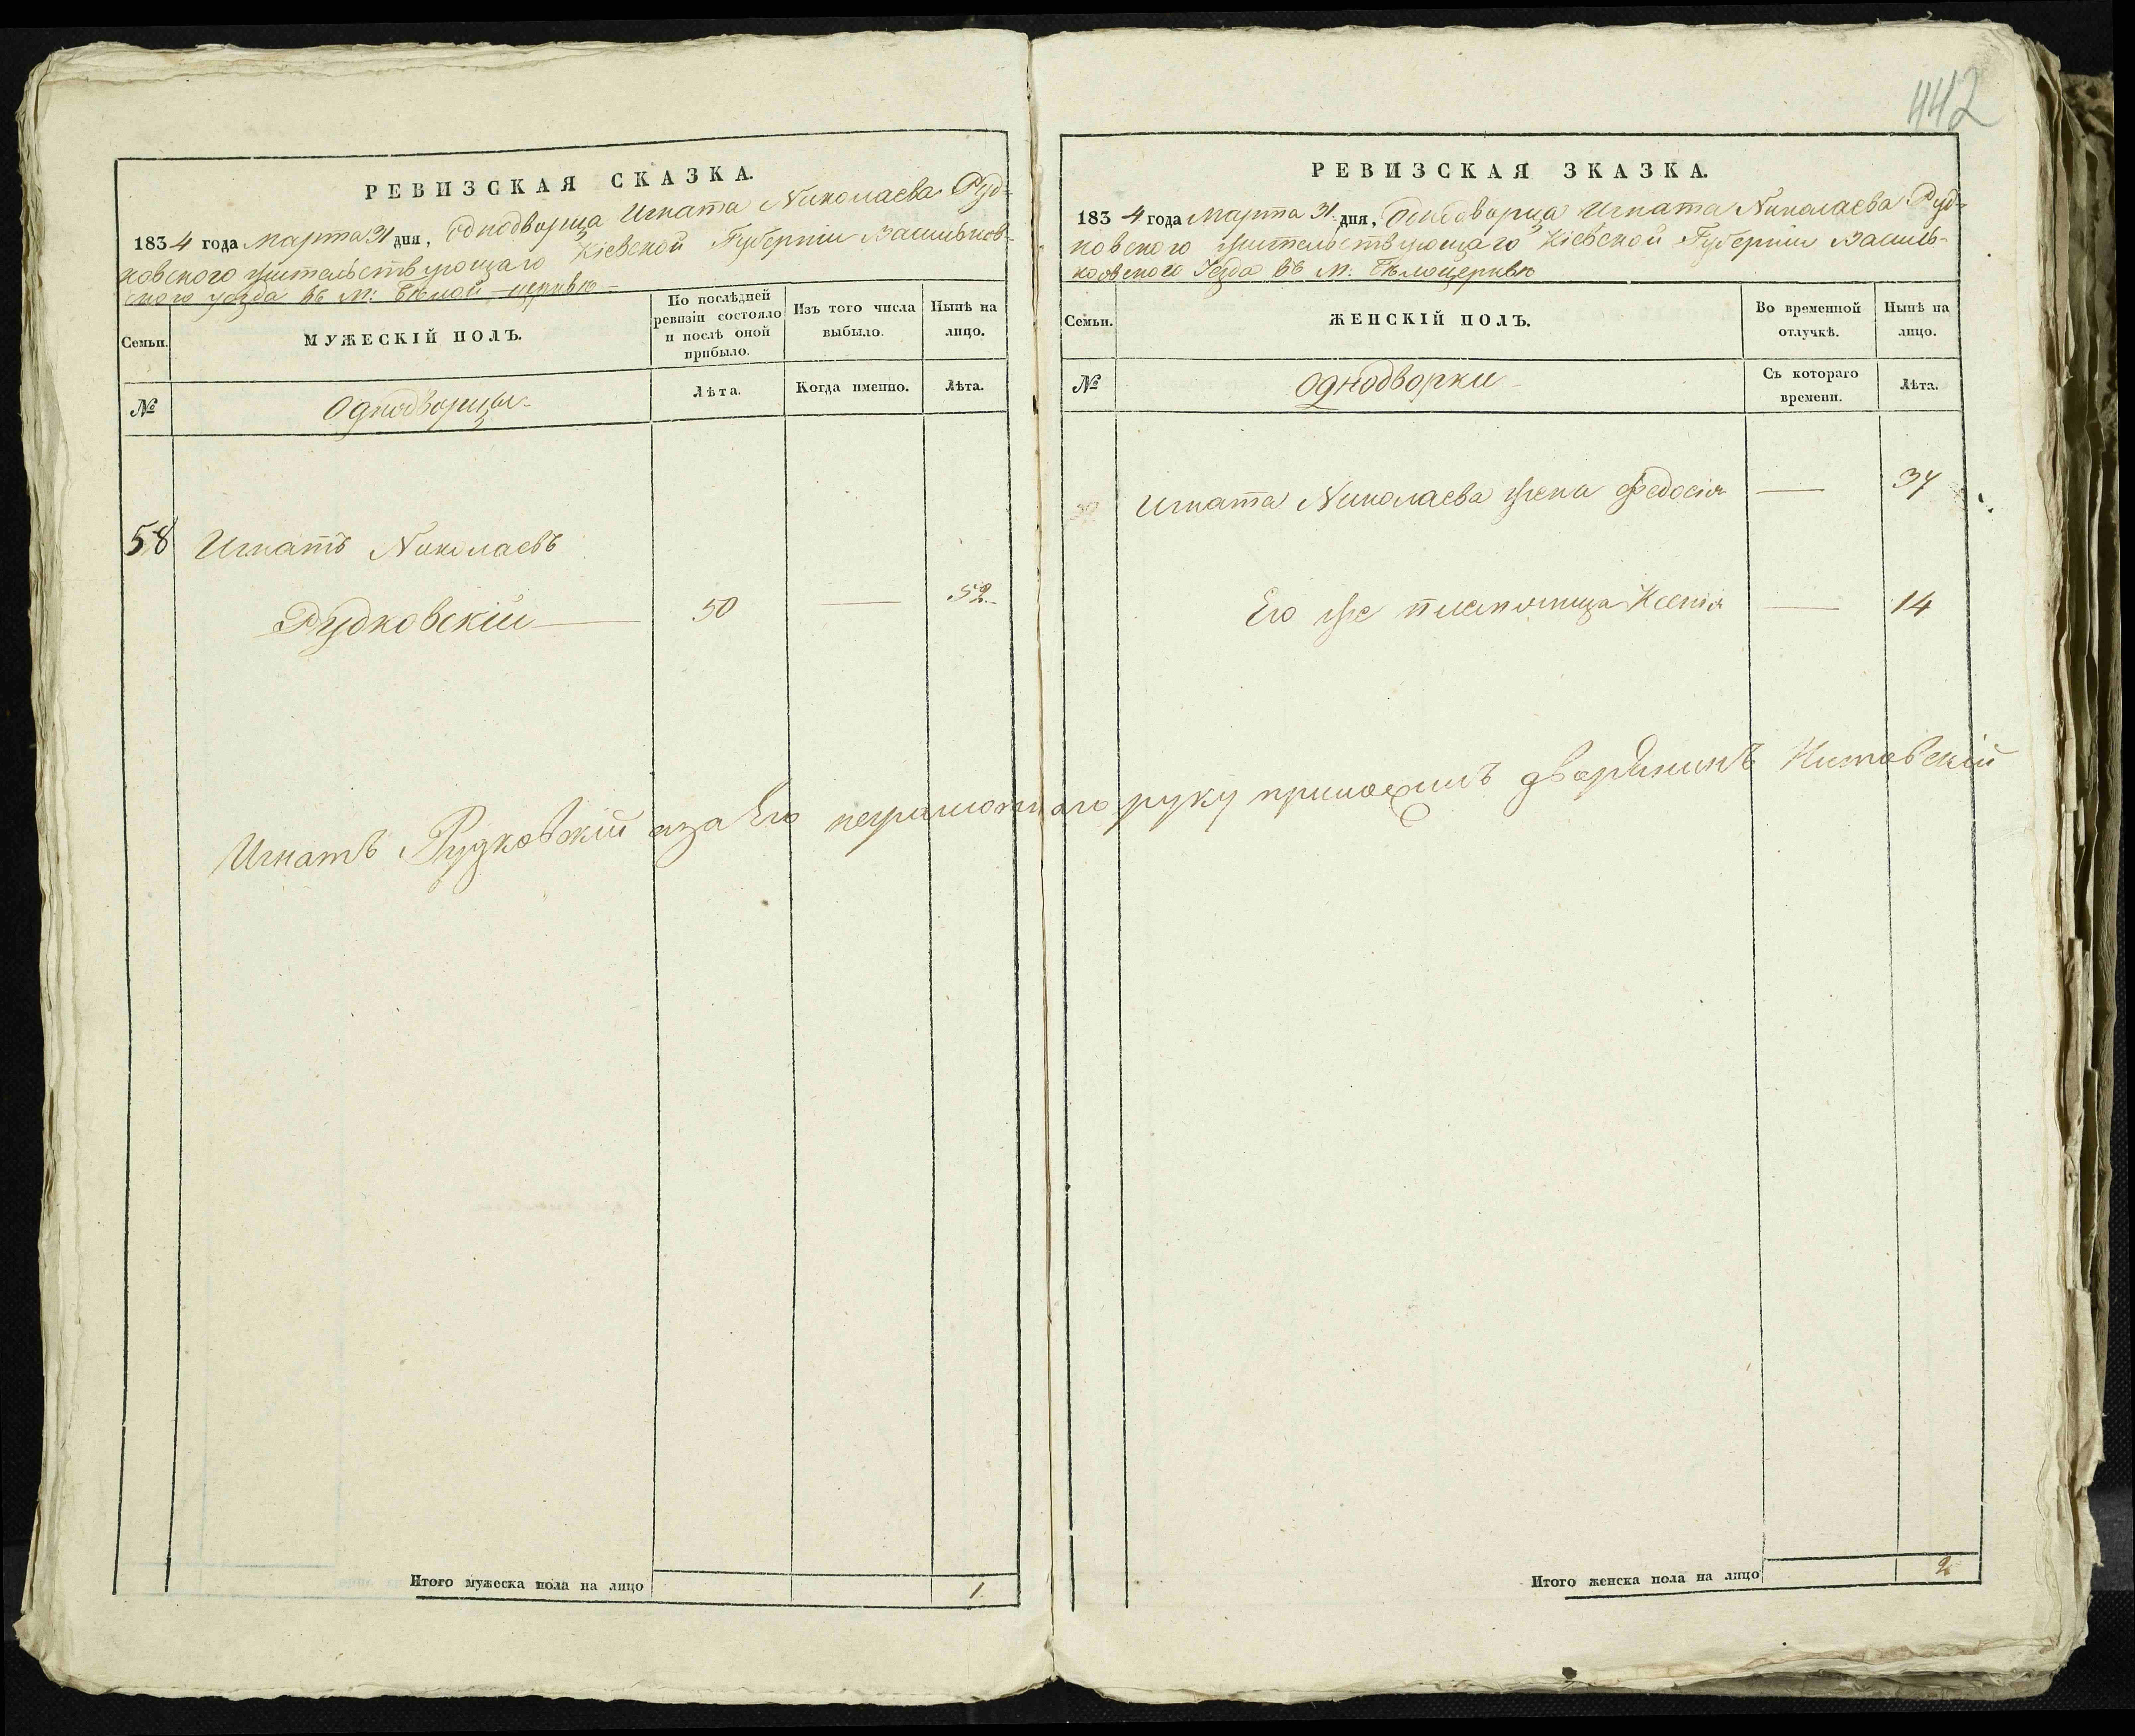 РЕВИЗСКАЯ СКАЗКА.
1834 года Марта 31 дня, Однодворца Игната Николаева Руд=
ковского жительствующаго Кіевской Губерніи Васильков-
ского уезда въ М: Бѣлой-церквѣ-
Семьи.
МУЖЕСКІЙ ПОЛЪ.
По послѣдней
ревизіи состояло
и послѣ оной
прибыло.
Изъ того числа
выбыло.
Нынѣ на
лицо.
№
Однодворцы-
Лѣта.
Когда именно.
Лѣта.
58 Игнатъ Николаевъ
Рудковскій 50 — 52.
Итого мужеска пола на лицо 1.
442
РЕВИЗСКАЯ ЗКАЗКА.
1834 года Марта 31. дня, Однодворца Игната Николаева Руд-
ковского жительствующаго Кіевской Губерніи Василь-
ковского Уезда въ М: Бѣлоцерквѣ
Семьи.
ЖЕНСКІЙ ПОЛЪ.
Во временной
отлучкѣ.
Нынѣ на
лицо.
№
Однодворки
Съ котораго
времени.
Лѣта.
Игната Николаева жена Федосія — 37
Его же племяница Ксенія — 14
Игнатъ Рудковскій а за Его неграмотнаго руку приложилъ дворянинъ
Итого женска пола на лицо 2